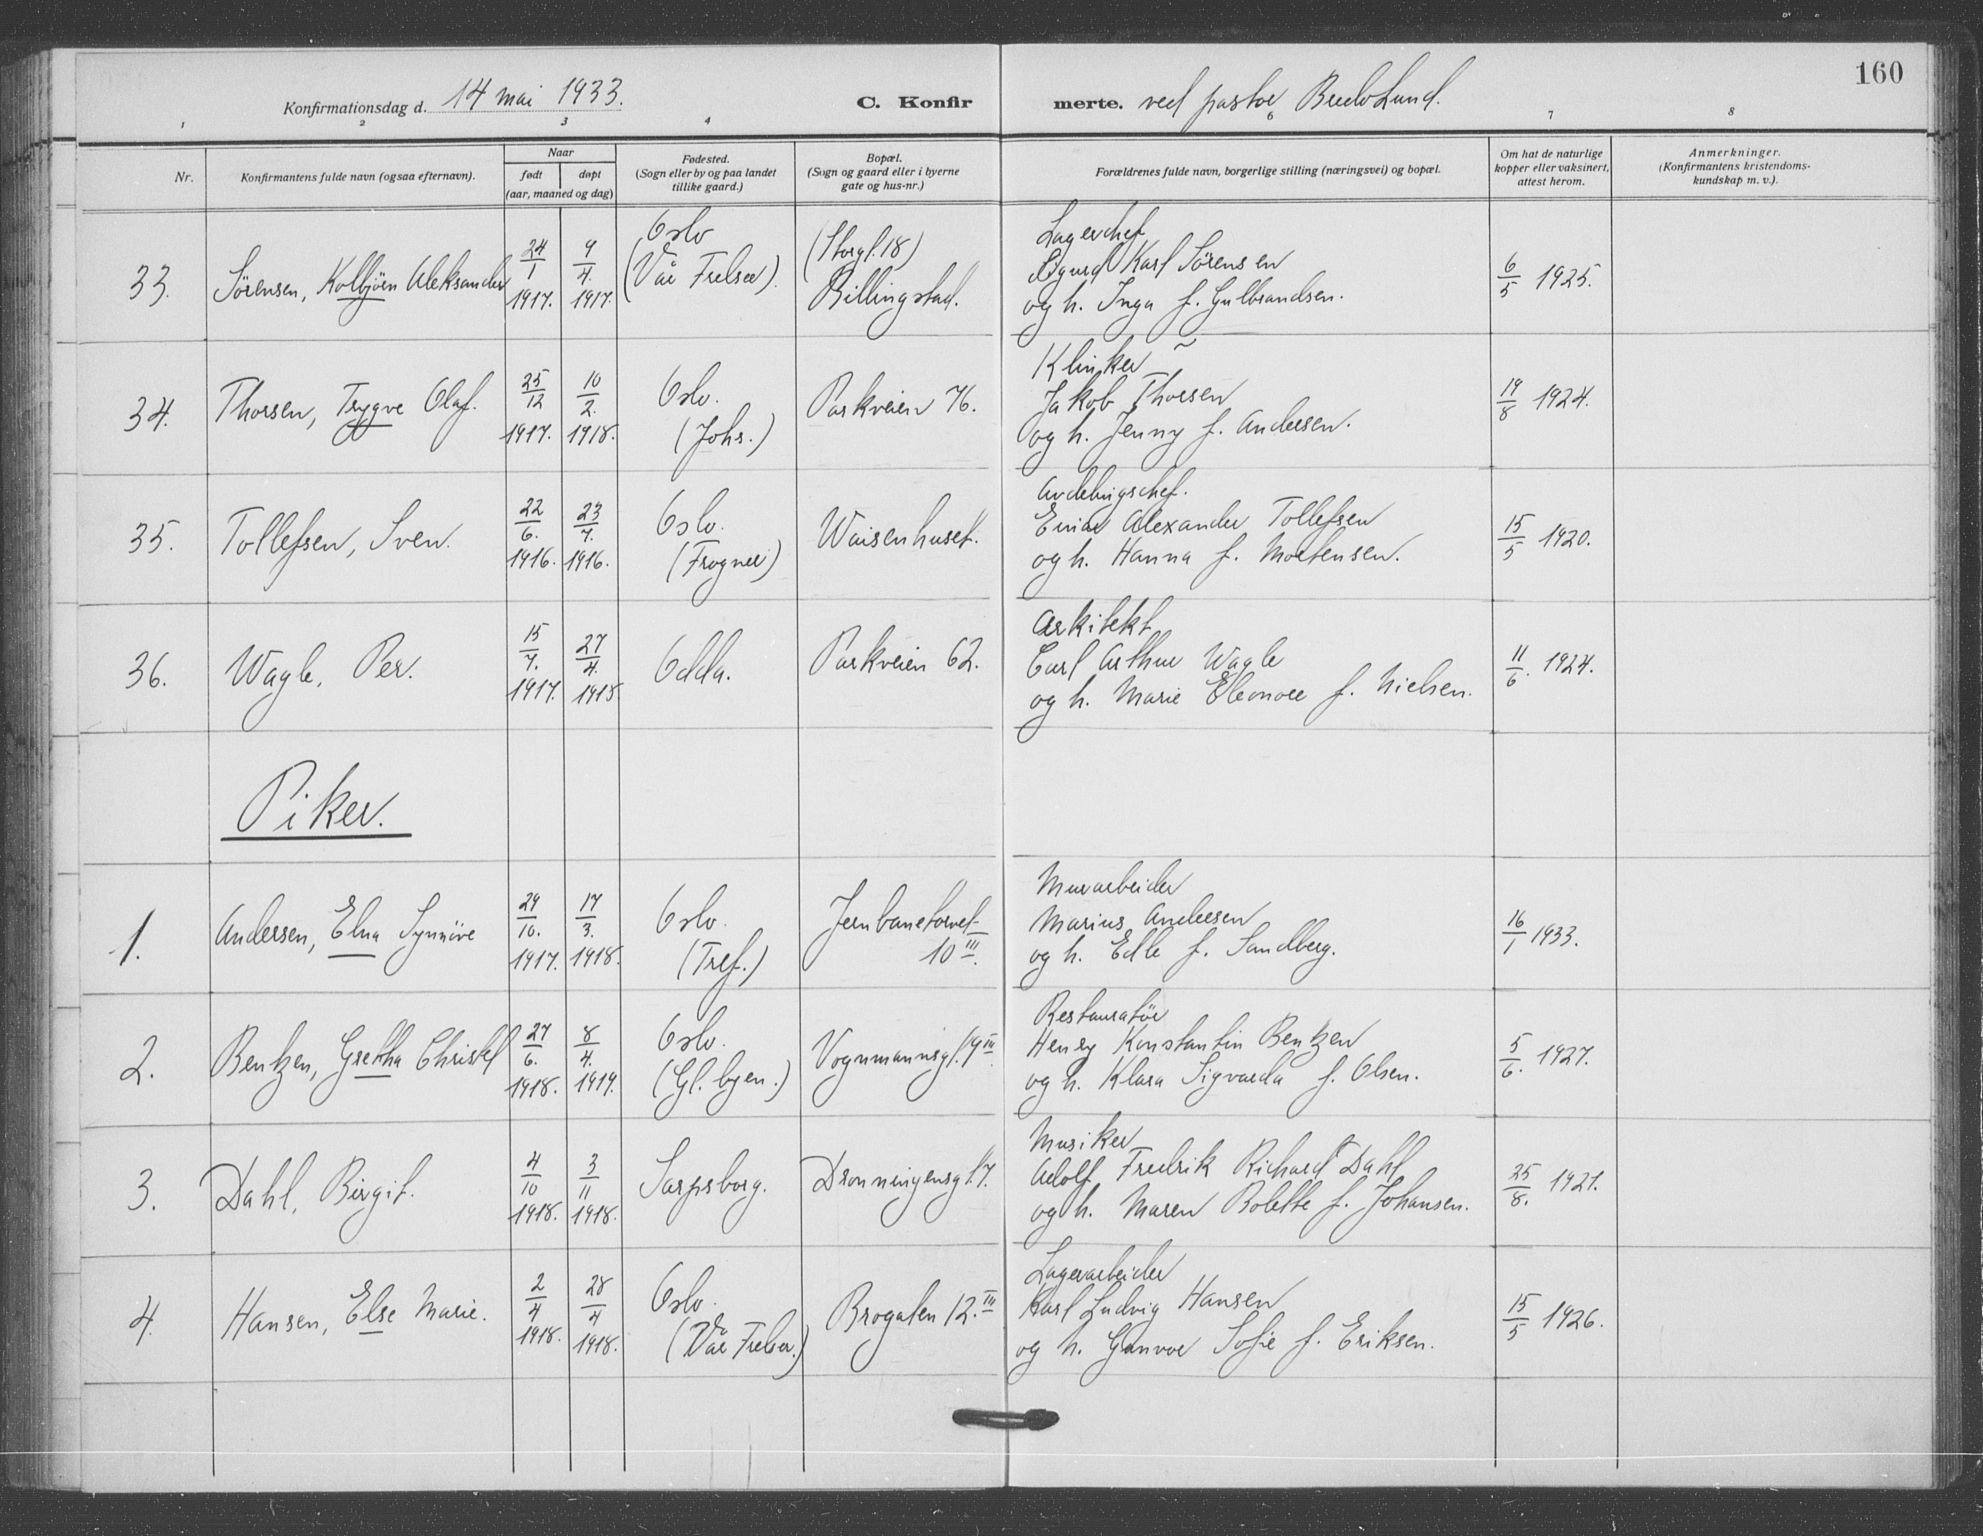 160
Konfirmationsdag d. 14 mai 1933. C. Konfir merte. ved pastor Lund.
1 2 3 4 6 7 8
Nr.
Konfirmantens fulde navn (ogsaa efternavn).
Naar
født døpt
(aar, maaned og dag)
Fødested.
(Sogn eller by og paa landet
tillike gaard.)
Bopæl.
(Sogn og gaard eller i byerne
gate og hus-nr.)
Forældrenes fulde navn, borgerlige stilling (næringsvei) og bopæl.
Om hat de naturlige
kopper eller vaksinert,
attest herom.
Anmerkninger.
(Konfirmantens kristendoms-
kundskap m. v.).
33. Sørensen, Kolbjörn Aleksander
24/1 1917. 9/4. 1917.
Oslo
(Vår Frelser).
(Storgt. 18)
Billingstad.
Lagerchef
Sigurd Karl Sörensen
og h. Inga f. Gulbrandsen.
6/5 1925.
34. Thorsen, Trygve Olaf.
25/12 1917. 10/2. 1918.
Oslo.
(Johs.)
Parkveien 76.
Klinker
Jakob Thorsen
og h. Jenny f. Andersen.
19/8 1924.
35. Tollefsen, Sven.
22/6. 1916. 23/7. 1916.
Oslo.
(Frogner)
Waisenhuset.
Avdelingschef.
Einar Alexander Tollefsen
og h. Hanna f. Mortensen.
15/5 1920.
36. Wagle, Per.
15/7. 1917. 27/4. 1918
Odda.
Parkveien 62.
Arkitekt
Carl Arthur Wagle
og h. Marie Eleonore f. Nielsen.
11/6. 1924.
Piker.
1. Andersen, Elna Synnöve
29/10. 1917. 17/3. 1918.
Oslo.
(Tref.)
Jernbanetorvet
10 III.
Murarbeider
Marius Andersen
og h. Edle f. Sandberg.
16/1 1933.
2. Bentzen, Gretha Christel
27/6. 1918. 8/4. 1919.
Oslo.
(Gl. byen.)
Vognmannsgt. 9 III
Restauratör
Henry Konstantin Bentzen
og h. Klara Sigvarda f. Olsen.
5/6. 1927.
3. Dahl, Birgit.
4/10 1918. 3/11 1918.
Sarpsborg.
Dronningensgt. 7.
Musiker
Adolf Fredrik Richard Dahl
og h. Maren Bolette f. Johansen.
25/8. 1921.
4. Hansen, Else Marie.
2/4 1918. 28/4 1918.
Oslo.
(Vår Frelser.)
Brogaten 12. III
Lagerarbeider
Karl Ludvig Hansen
og h. Gunvor Sofie f. Eriksen.
15/5 1926.